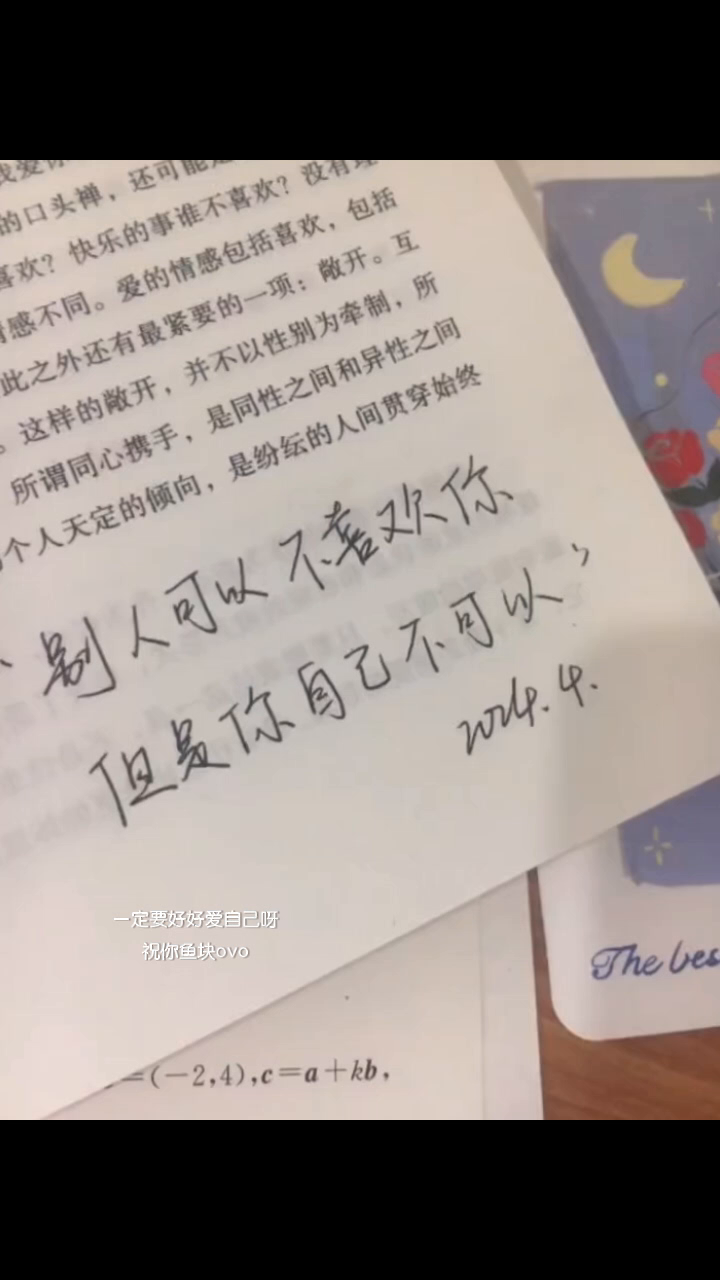 我爱你
的口头禅，还可能是
喜欢？快乐的事谁不喜欢？没有理
情感不同。爱的情感包括喜欢，包括
此之外还有最紧要的一项：敞开。互
。这样的敞开，并不以性别为牵制，所
所谓同心携手，是同性之间和异性之间
个人天定的倾向，是纷纭的人间贯穿始终
别人可以不喜欢你
但是你自己不可以”
2024.4.
一定要好好爱自己呀
祝你鱼块ovo
=(-2,4),c=a+kb,
The bes